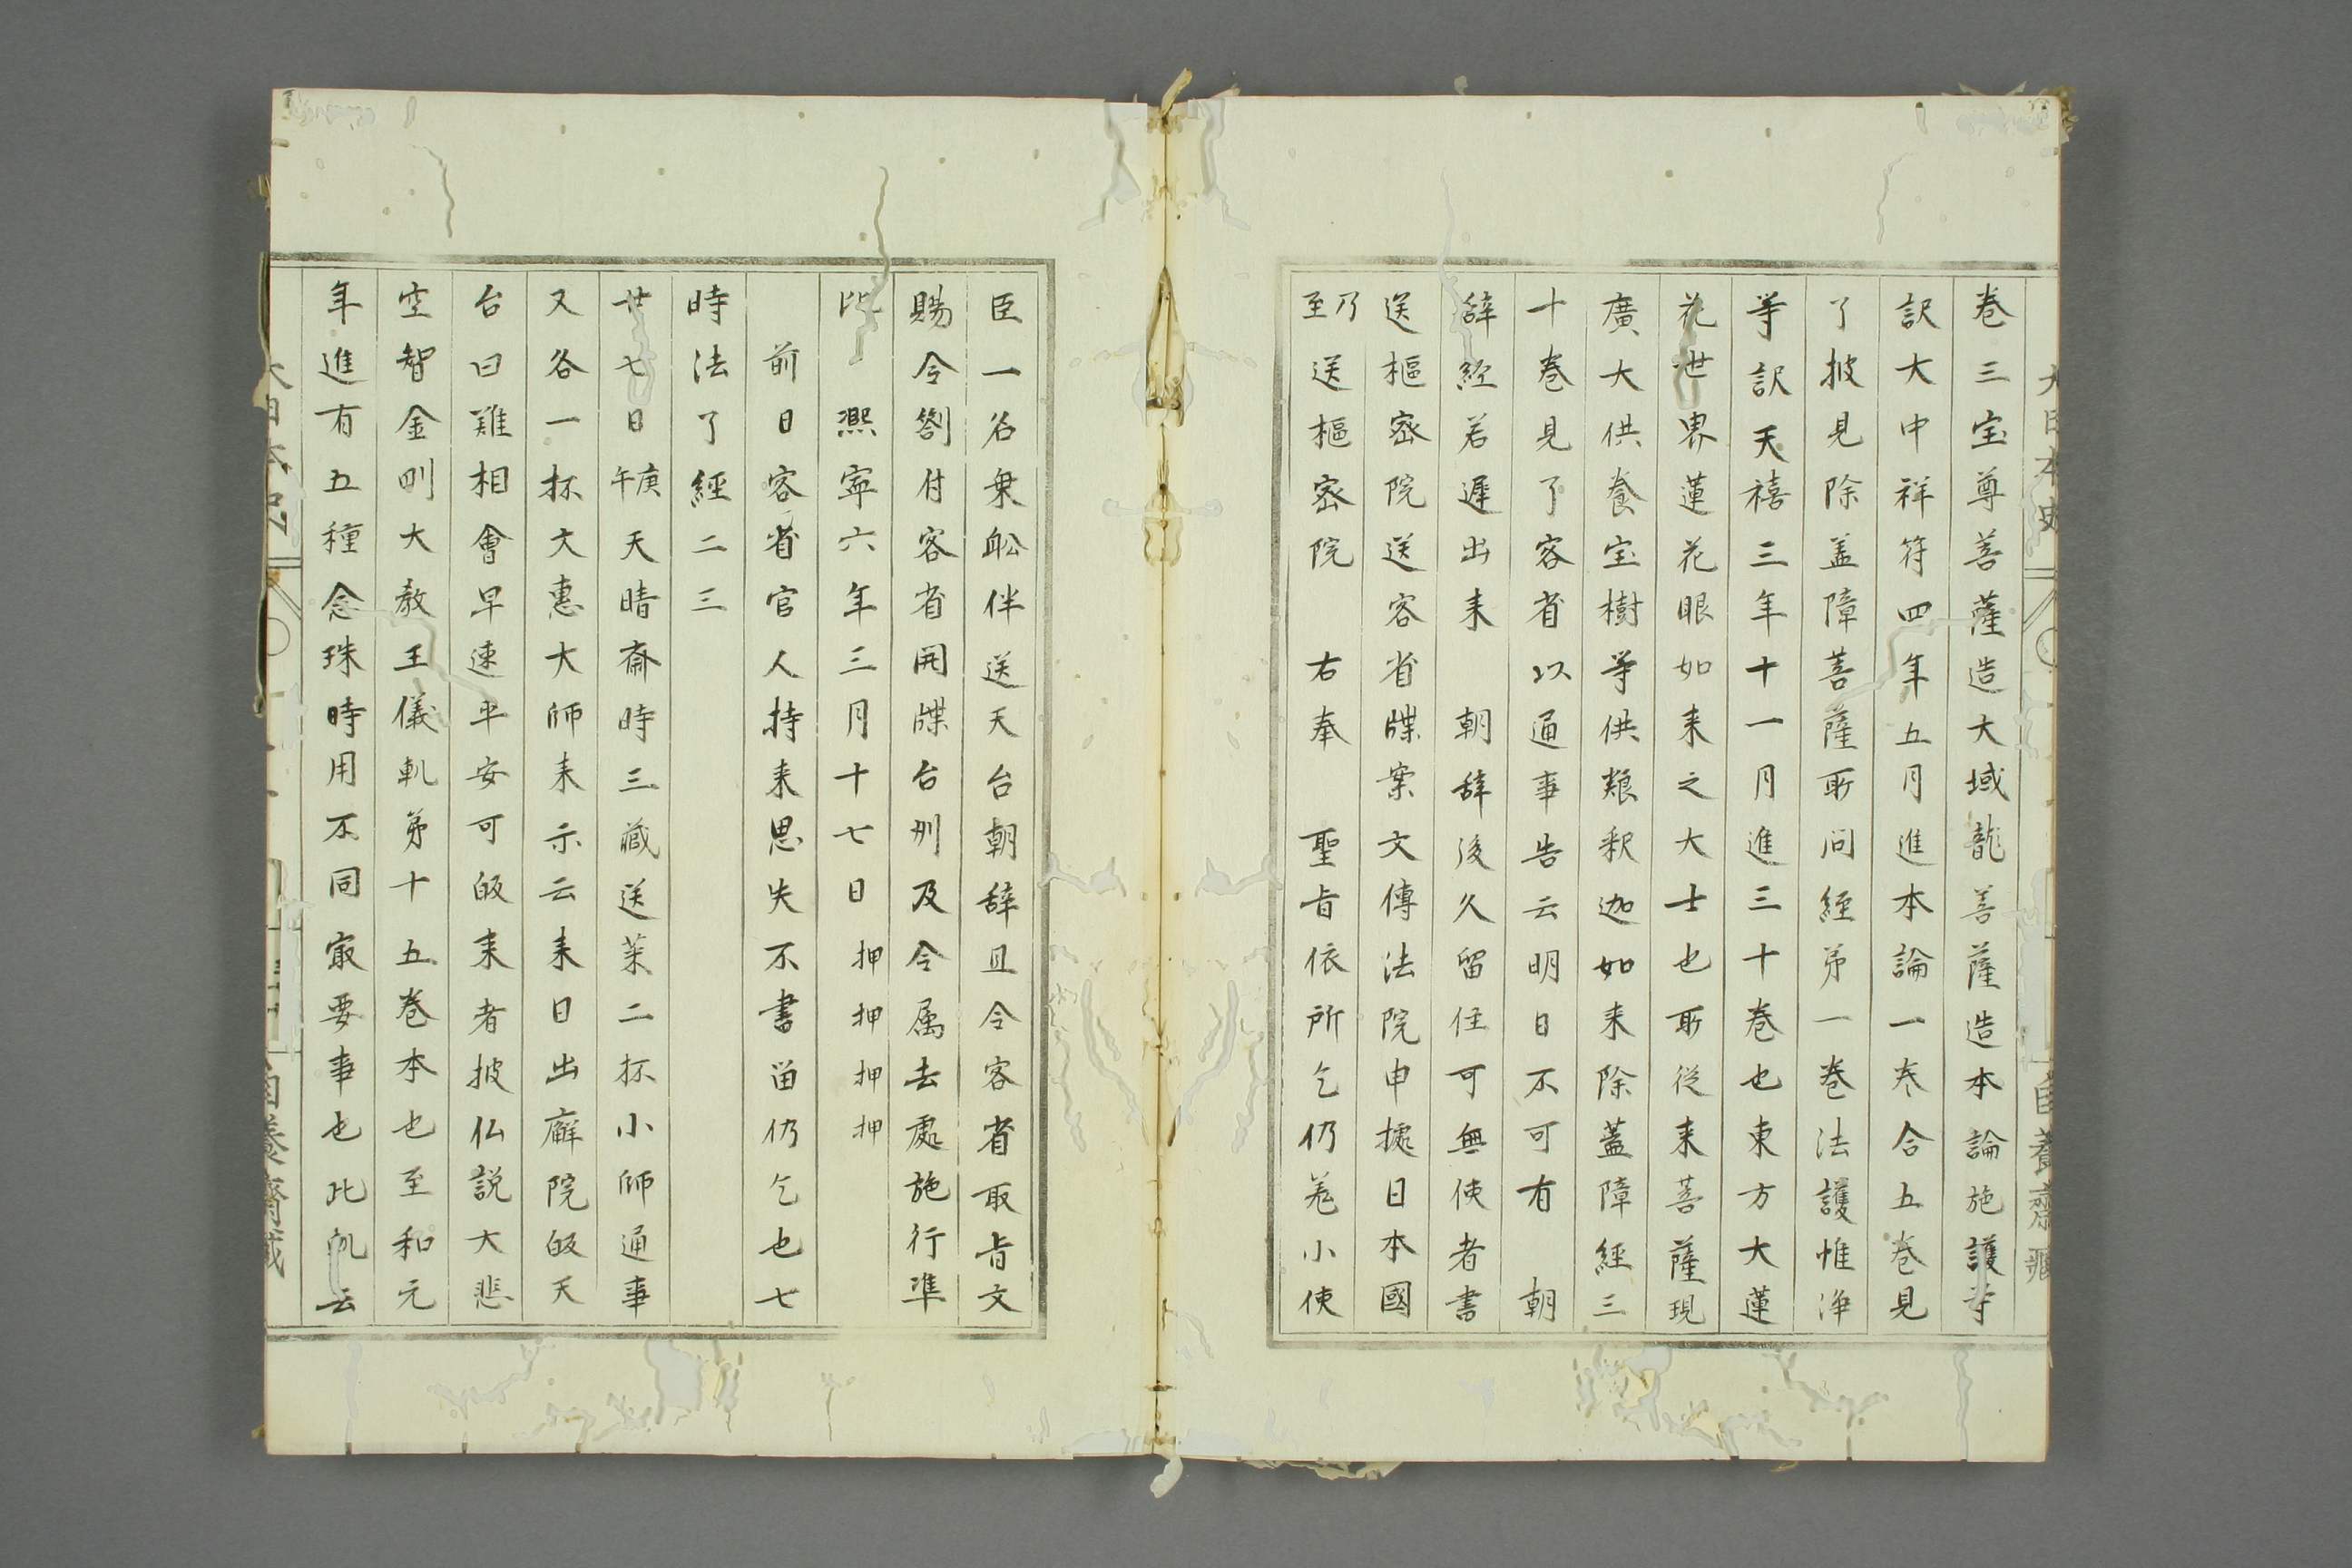 卷三宝尊菩薩造大域龍菩薩造本論施護等
訳大中祥符四年五月進本論一卷合五卷見
了披見除盖障菩薩所问經第一卷法護惟淨
等訳天禧三年十一月進三十卷也東方大蓮
花世界蓮花眼如来之大士也所從来菩薩現
廣大供養宝樹等供粮釈迦如来除蓋障經三
十卷見了客省以通事告云明日不可有　朝
辞經若遲出来　朝辞後久留住可無使者書
送樞密院送客省牒案文傳法院申據日本國
乃至送樞密院　右奉　聖旨依所乞仍差小使
臣一名乗舩伴送天台朝辞且令客省取旨文
賜令劄付客省開牒台州及令属去處施行準
此　熈寧六年三月十七日　押押押押
前日客省官人持来思失不書留仍乞也七
時法了經二三
廿七日庚午天晴斎時三藏送茶二杯小師通事
又各一杯文惠大師来示云来日出廨院皈天
台曰難相會早速平安可皈来者披仏説大悲
空智金剛大教王儀軌第十五卷本也至和元
年進有五種念珠時用不同㝡要事也此軌云
大日本史
自養齋藏